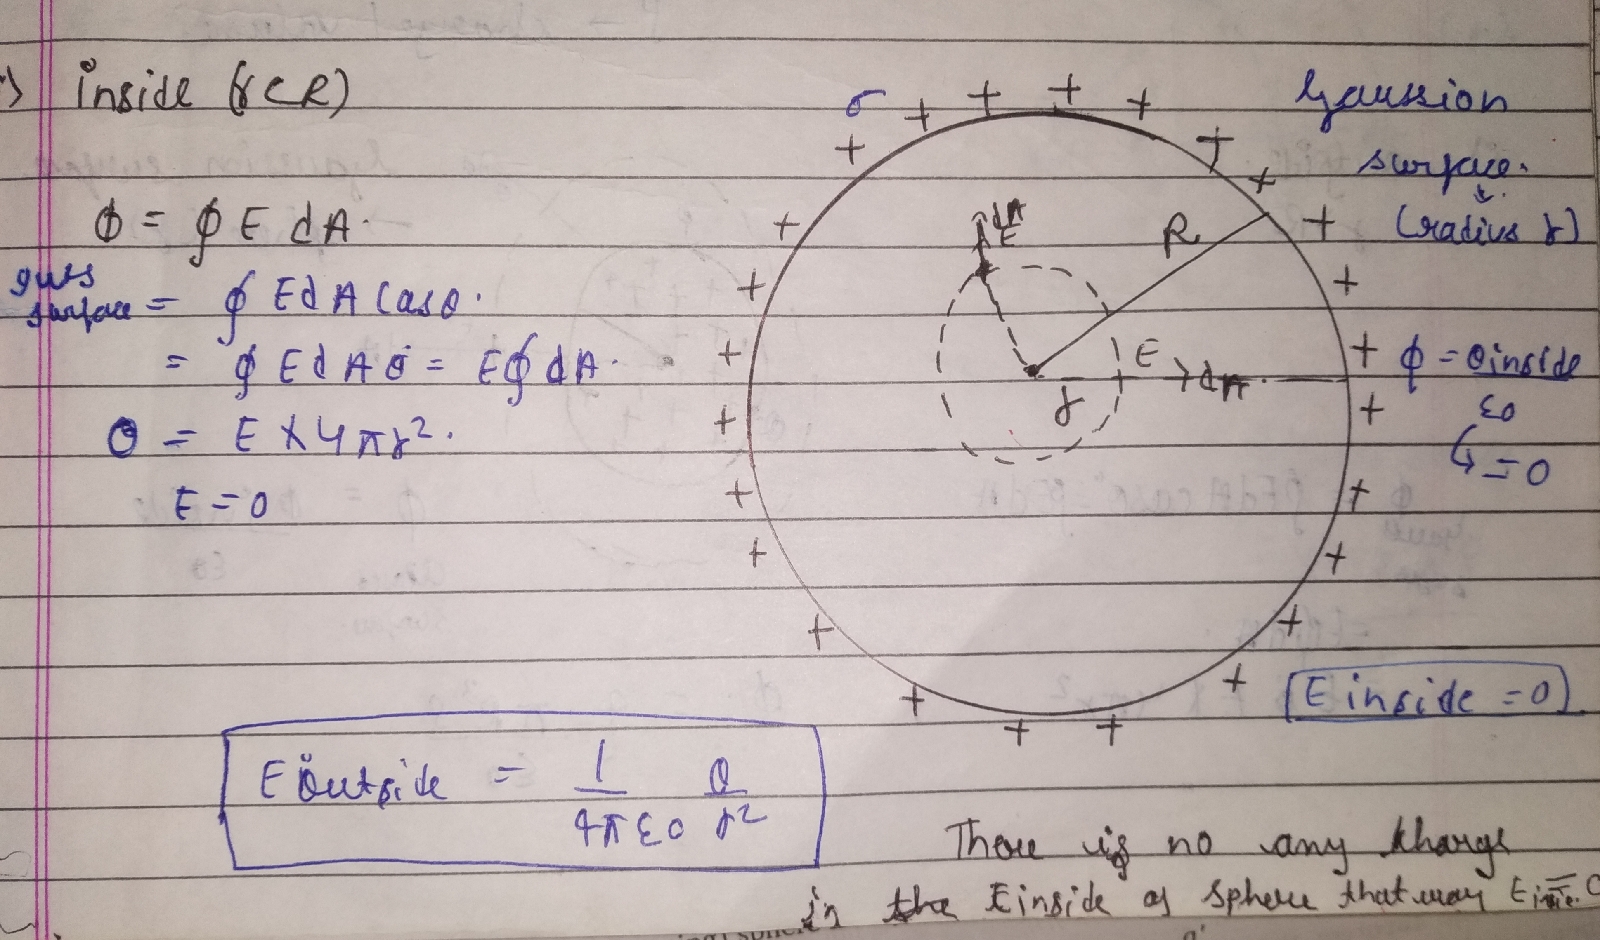 inside (r<R)
ϕ = ∮ E dA.
guss surface = ∮ E dA Casθ.
= ∮ E dA 0 = E∮ dA.
0 = E × 4πr².
E = 0
σ
R
dA
E
r
E
dA
Gaussion
surface.
(radius r)
ϕ = Qinside
ε0
= 0
E inside = 0
E Outside = 1/4πε0 Q/r²
There is no any Kharge
in the Einside of Sphere that way E